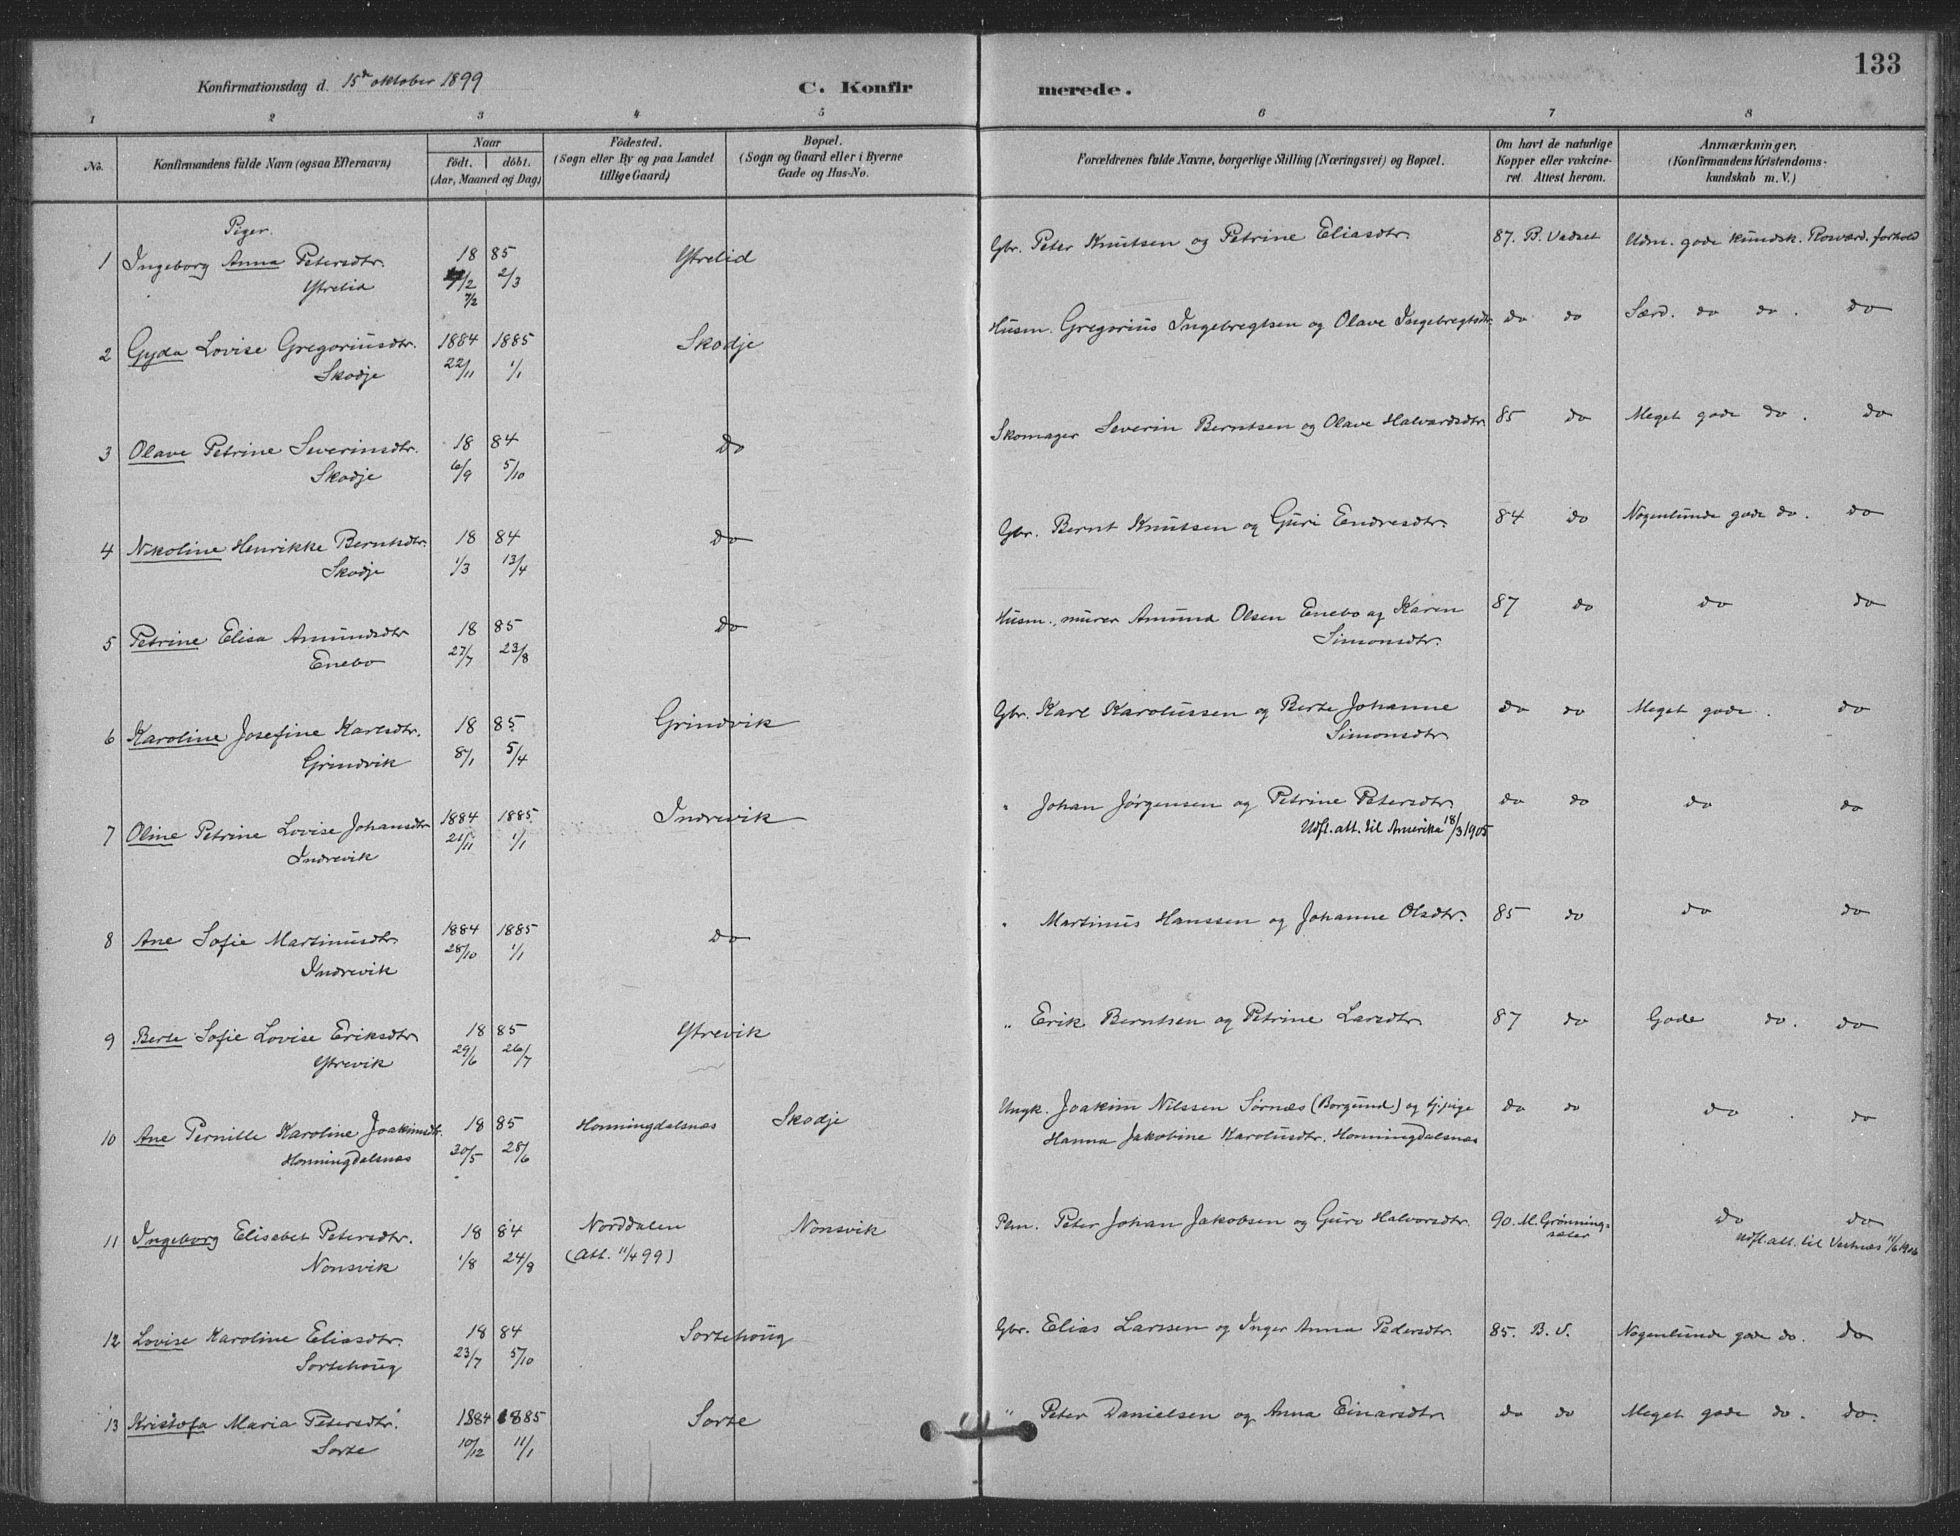 133
Konfirmationsdag d. 15de oktober 1899
C. Konfir merede.
1 2 3 4 5 6 7 8
No. Konfirmandens fulde Navn (ogsaa Efternavn) Naar födt. döbt. (Aar, Maaned og Dag) Födested. (Sogn eller By og paa Landet tillige Gaard) Bopæl. (Sogn og Gaard eller i Byerne Gade og Hus-No. Forældrenes fulde Navne, borgerlige Stilling (Næringsvei) og Bopæl. Om havt de naturlige Kopper eller vakcineret. Attest herom. Anmærkninger. (Konfirmandens Kristendomskundskab m. V.)
Piger.
1 Ingeborg Anna Petersdtr. 18 85 Ytrelid Gbr. Peter Knutsen og Petrine Eliasdtr. 87. B. Vadset Udm. gode kundsk. Rosværd. forhold
Ytrelid 7/2 2/3
7/2
2 Gyda Lovise Gregoriusdtr. 1884 1885 Skodje Husm. Gregorius Ingebregtsen og Olave Ingebregtsdtr. do do Særd. do do. do
Skodje 22/11 1/1
3 Olave Petrine Severinsdtr. 18 84 do Skomager Severin Berntsen og Olave Halvardsdtr 85 do Meget gode do. do
Skodje 6/9 5/10
4 Nikoline Henrikke Berntsdtr. 18 84 do Gbr. Bernt Knutsen og Guri Endresdtr. 84 do Nogenlunde gode do. do
Skodje 1/3 13/4
5 Petrine Elisa Amundsdtr 18 85 do Husm., murer Amund Olsen Enebo og Karen 87 do do do
Enebo 27/7 23/8 Simonsdtr.
6 Karoline Josefine Karlsdtr. 18 85 Grindvik Gbr. Karl Karolussen og Berte Johanne do do Meget gode. do
Grindvik 8/1 5/4 Simonsdtr
7 Oline Petrine Lovise Johansdtr 1884 1885 Indrevik " Johan Jørgensen og Petrine Petersdtr. do do do do
Indrevik 21/11 1/1 Udfl. att. til Amerika 18/3 1905
8 Ane Sofie Martinusdtr. 1884 1885 do " Martinus Hanssen og Johanne Olsdtr. 85 do do do
Indrevik 28/10 1/1
9 Berte Sofie Lovise Eriksdtr 18 85 Ytrevik " Erik Berntsen og Petrine Larsdtr 87 do Gode do. do
Ytrevik 29/6 26/7
10 Ane Pernille Karoline Joakimsdtr. 18 85 Honningdalsnæs Skodje Ungk. Joakim Nilssen Sørnæs (Borgund) og tj. pige do do do. do
Honningdalsnæs 30/5 28/6 Hanna Jakobine Karolusdtr. Honningdalsnæs
11 Ingeborg Elisabet Petersdtr. 18 84 Norddalen Nonsvik Plm. Peter Johan Jakobsen og Guro Halvorsdtr. 90. M. Grønningsæter do do
Nonsvik 1/8 24/8 (Att. 11/4 99) Udfl. att. til Vestnæs 11/6 1906
12 Lovise Karoline Eliasdtr. 18 84 Sortehoug Gbr. Elias Larssen og Inger Anna Pedersdtr 85. B. V. Nogenlunde gode do. do
Sortehoug 23/7 5/10
13 Kristofa Maria Petersdtr. 1884 1885 Sorte " Peter Danielsen og Anna Einarsdtr do do Meget gode do. do.
Sorte 10/12 11/1